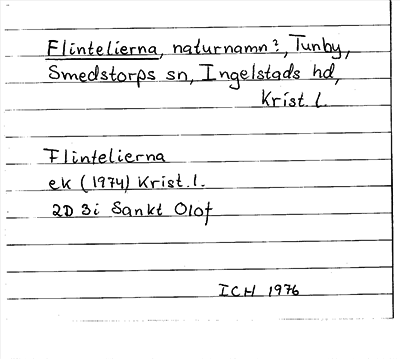 Flintelierna, naturnamn?, Tunby,
Smedstorps sn, Ingelstads hd,
Krist. l.
Flintelierna
ek (1974) Krist. l.
2D 3i Sankt Olof
ICH 1976